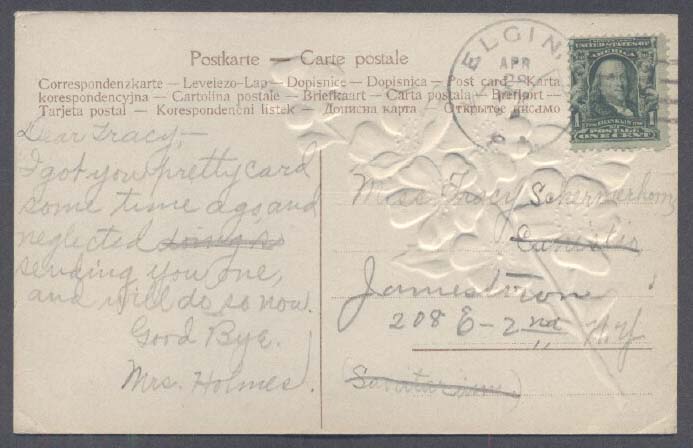 Postkarte — Carte postale
Correspondenzkarte — Levelezo-Lap — Dopisnice — Dopisnica — Post card — Karta
korespondencyjna — Cartolina postale — Briefkaart — Carta postala — Brefkort —
Tarjeta postal — Korespondenční listek — Дописна карта — Открытое письмо
ELGIN,
APR
UNITED STATES OF AMERICA
1 1
POSTAGE
ONE CENT
Dear Tracy,—
I got you pretty card
some time ago, and
neglected doing so
sending you one,
and will do so now.
Good Bye.
Mrs. Holmes.
Miss Tracy Schermerhorn
Jamestown
208 E - 2nd N.Y
(Sanatarium)